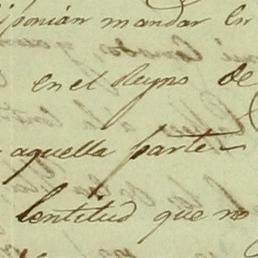 ponian mandar en
en el Reyno de
aquella parte
lentitud que no